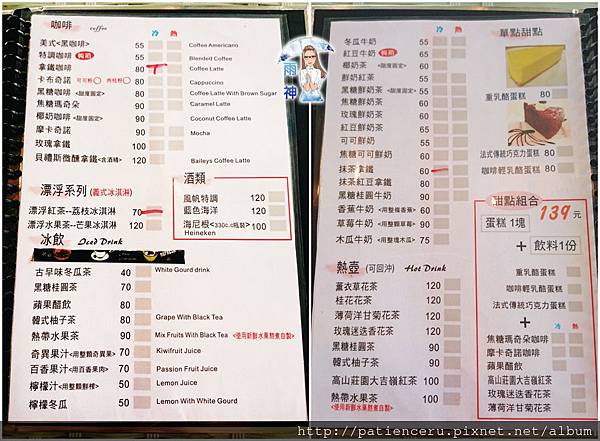 咖啡 coffee 冷 熱
美式<黑咖啡> 55 Coffee Americano
特調咖啡 55 Blended Coffee
拿鐵咖啡 80 Coffee Latte
卡布奇諾 可可粉 肉桂粉 80 Cappuccino
黑糖咖啡<甜度固定> 80 Coffee Latte With Brown Sugar
焦糖瑪奇朵 90 Caramel Latte
椰奶咖啡<甜度固定> 90 Coconut Coffee Latte
摩卡奇諾 90 Mocha
玫瑰拿鐵 90
貝禮斯微醺拿鐵<含酒精> 120 Baileys Coffee Latte
漂浮系列 (義式冰淇淋)
漂浮紅茶--荔枝冰淇淋 70
漂浮水果茶--芒果冰淇淋 120
酒類
風帆特調 120
藍色海洋 120
海尼根<330c.c瓶裝> 100
Heineken
冰飲 Iced Drink
古早味冬瓜茶 40 White Gourd drink
黑糖桂圓茶 70
蘋果醋飲 80
韓式柚子茶 80 Grape With Black Tea
熱帶水果茶 90 Mix Fruits With Black Tea <使用新鮮水果熬煮自製>
奇異果汁<用整顆奇異果> 70 Kiwifruit Juice
百香果汁<用百香果肉> 70 Passion Fruit Juice
檸檬汁<用整顆鮮榨> 50 Lemon Juice
檸檬冬瓜 50 Lemon With White Gourd
雨神
冷 熱
冬瓜牛奶 55
紅豆牛奶 60
椰奶茶<甜度固定> 60
鮮奶紅茶 60
黑糖鮮奶茶<甜度固定> 60
焦糖鮮奶茶 60
玫瑰鮮奶茶 60
紅豆鮮奶茶 60
可可鮮奶 60
焦糖可可鮮奶 60
抹茶拿鐵 60
抹茶紅豆拿鐵 80
黑糖桂圓牛奶 90
香蕉牛奶<用整條香蕉> 60
草莓牛奶<用整顆草莓> 90
木瓜牛奶<用整塊木瓜> 75
熱壺 (可回沖) Hot Drink
薰衣草花茶 120
桂花花茶 120
薄荷洋甘菊花茶 120
玫瑰迷迭香花茶 120
黑糖桂圓茶 100
韓式柚子茶 120
高山莊園大吉嶺紅茶 100
熱帶水果茶 100
<使用新鮮水果熬煮自製>
單點甜點
重乳酪蛋糕 80
法式傳統巧克力蛋糕 80
咖啡輕乳酪蛋糕 80
甜點組合 139元
蛋糕 1塊
+ 飲料1份
重乳酪蛋糕
咖啡輕乳酪蛋糕
法式傳統巧克力蛋糕
+ 冷 熱
焦糖瑪奇朵咖啡
摩卡奇諾咖啡
蘋果醋飲
高山莊園大吉嶺紅茶
玫瑰迷迭香花茶
薄荷洋甘菊花茶
http://patienceru.pixnet.net/album